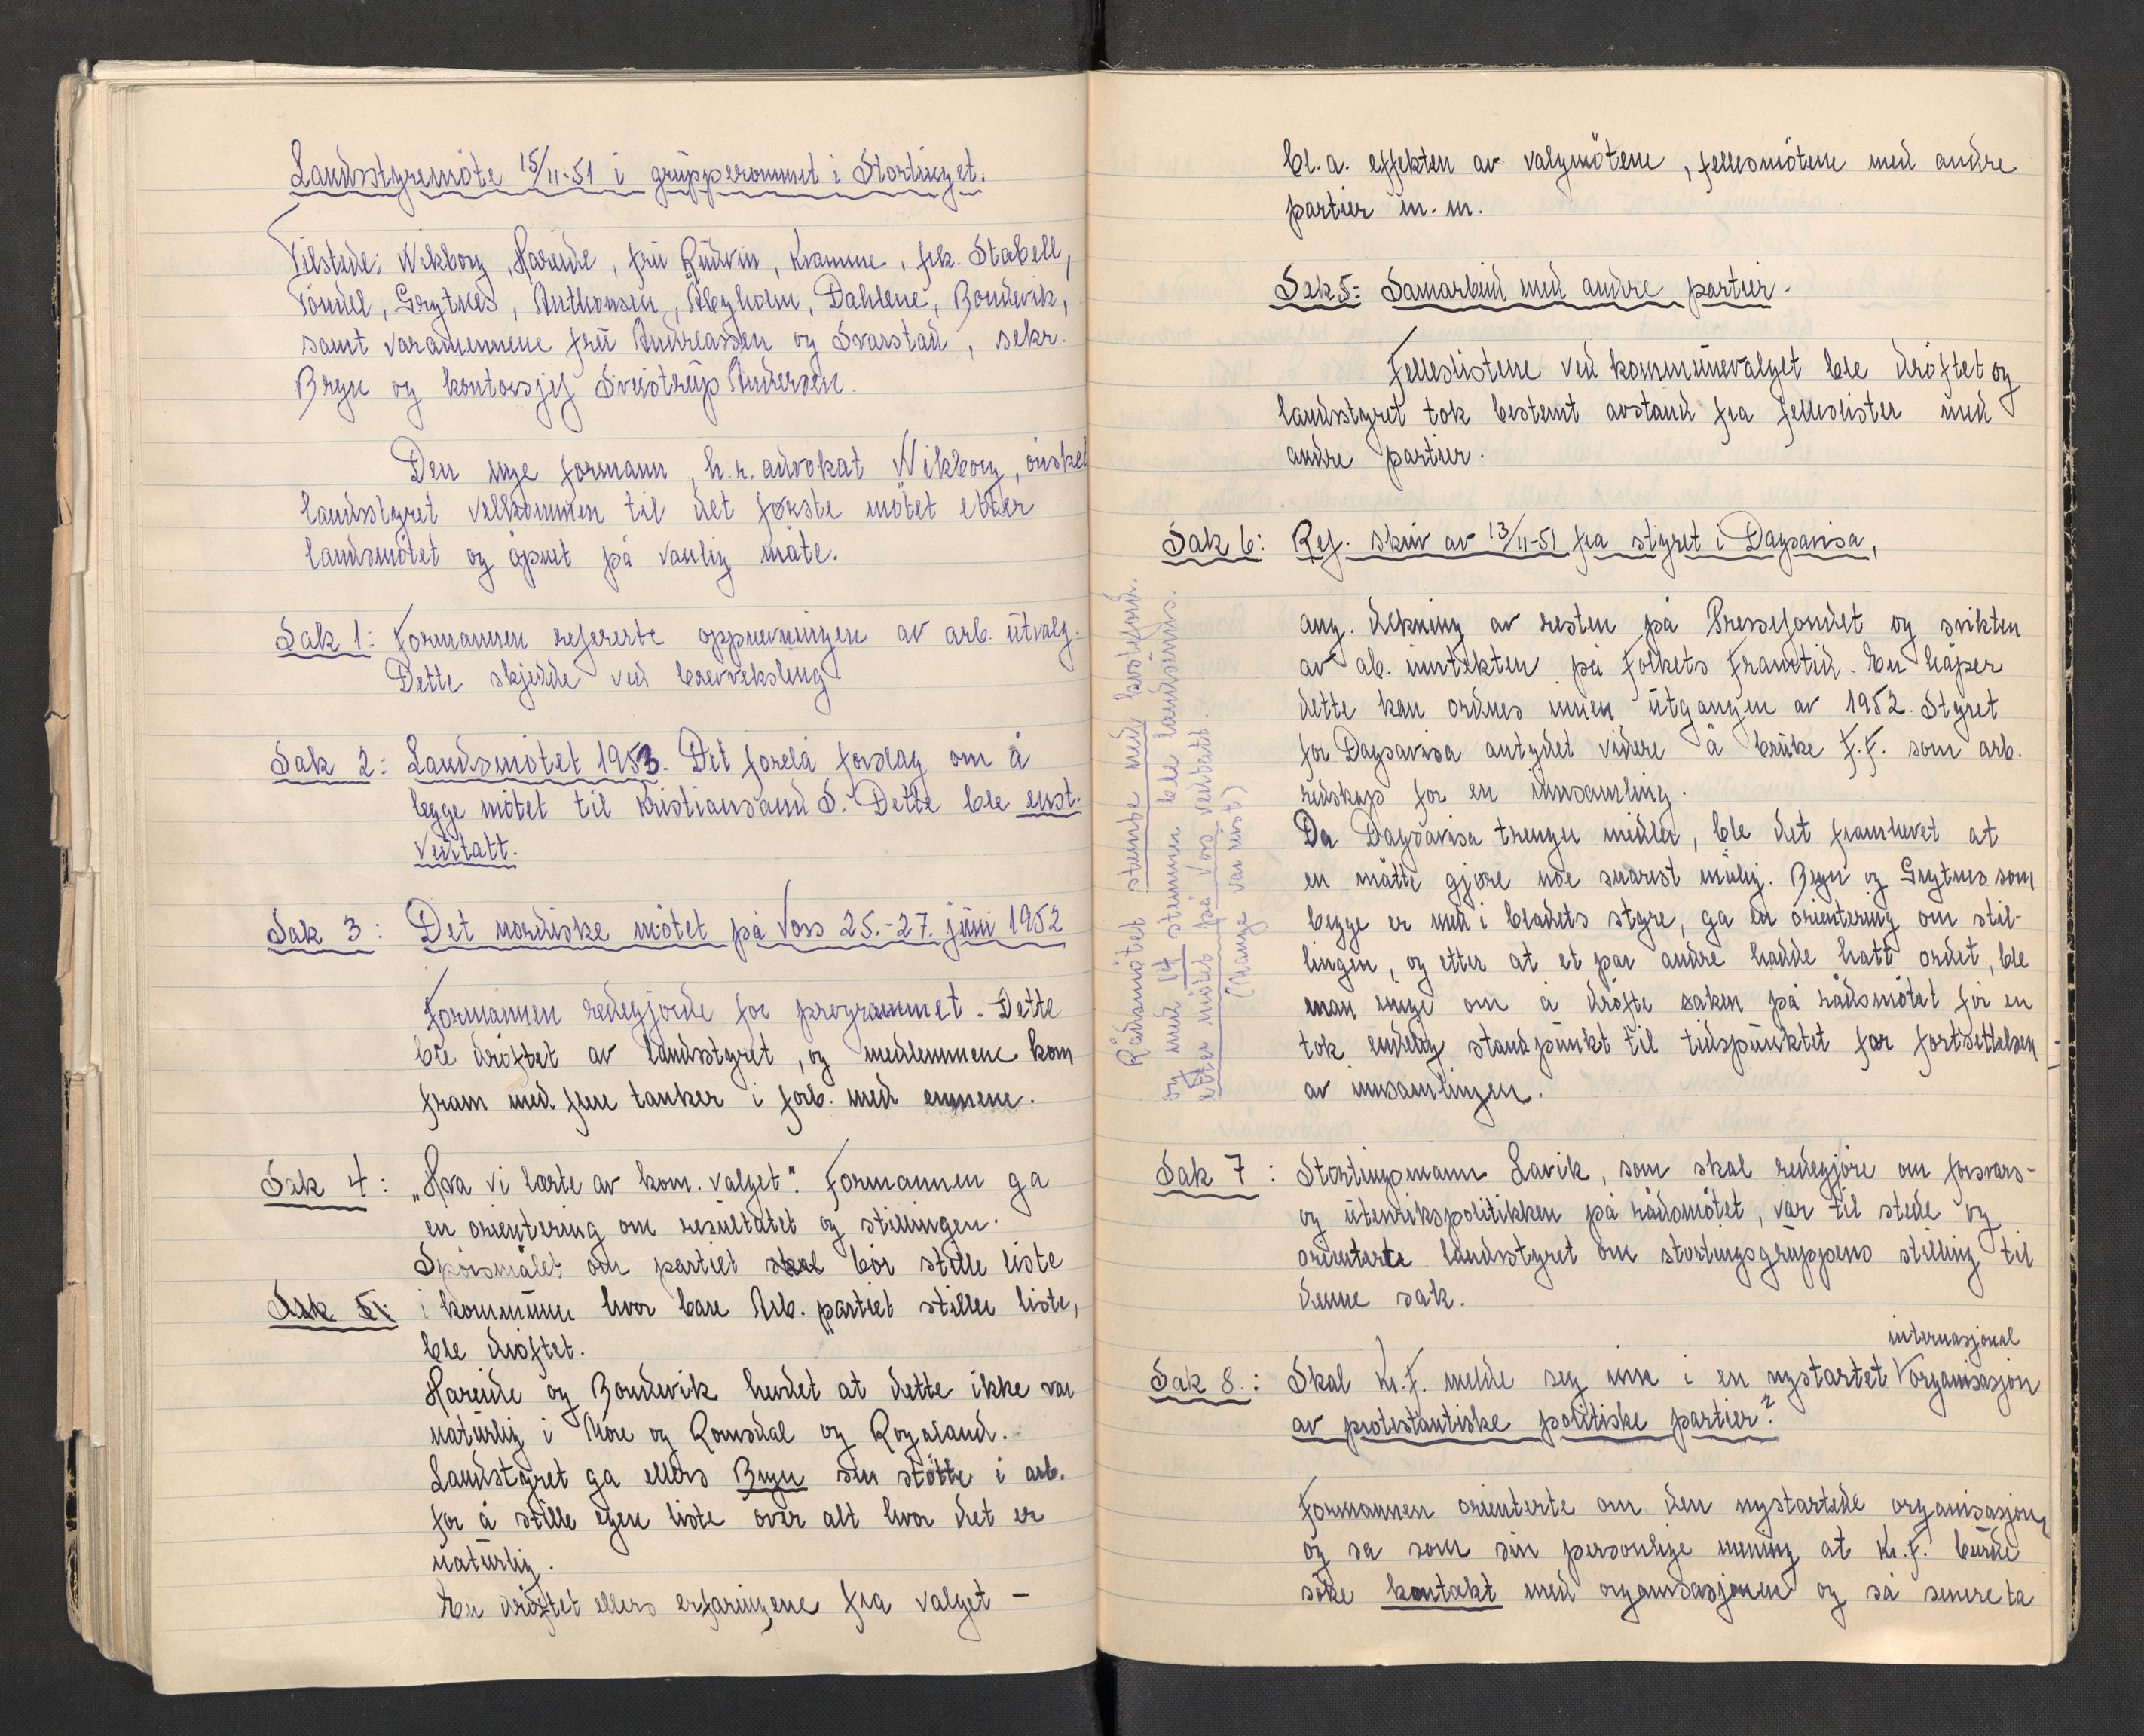 Landsstyremöte 15/11-51 i grupperommet i Stortinget.
Tilstede: Wikborg, Hareide, fru Rudvin, Kvamme, frk. Stabell,
Töndel, Grytnes, Anthonsen, Åbyholm, Dahlene, Bondevik,
samt varamennene fru Andreassen og Svarstad, sekr.
Bryn og kontorsjef Sveistrup Andersen.
Den nye formann, h.r. advokat Wikborg, önsket
landsstyret velkommen til det første mötet etter
landsmötet og åpnet på vanlig måte.
Sak 1: Formannen refererte oppnevningen av arb. utvalg.
Dette skjedde ved brevveksling
Sak 2: Landsmötet 1953. Det forelå forslag om å
legge mötet til Kristiansand S. Dette ble enst.
vedtatt.
Sak 3: Det nordiske mötet på Voss 25.-27. juni 1952
Formannen redegjorde for programmet. Dette
ble dröftet av landsstyret, og medlemmene kom
fram med flere tanker i forb. med emnene.
Sak 4: „Hva vi lærte av kom. valget". Formannen ga
en orientering om resultatet og stillingen.
Spörsmålet om partiet skal bör stille liste
Sak 5: i kommuner hvor bare Arb. partiet stiller liste,
ble dröftet.
Hareide og Bondevik hevdet at dette ikke var
naturlig i Möre og Romsdal og Rogaland.
Landstyret ga ellers Bryn sin stötte i arb.
for å stille egen liste over alt hvor det er
naturlig.
En dröftet ellers erfaringene fra valget -
bl.a. effekten av valgmötene, fellesmötene med andre
partier m.m.
Sak 5: Samarbeid med andre partier.
Felleslistene ved kommunevalget ble dröftet og
landsstyret tok bestemt avstand fra felleslister med
andre partier.
Sak 6: Ref. skriv av 13/11-51 fra styret i Dagsavisa,
ang. dekning av resten på Pressefondet og svikten
av ab. inntekten på Folkets Framtid. En håper
dette kan ordnes innen utgangen av 1952. Styret
for Dagsavisa antydet videre å bruke F.F. som arb.
redskap for en innsamling.
Da Dagsavisa trenger midler, ble det framhevet at
en måtte gjöre noe snarest mulig. Bryn og Grytnes som
begge er med i bladets styre, ga en orientering om stil-
lingen, og etter at et par andre hadde hatt ordet, ble
man enige om å dröfte saken på rådsmötet för en
tok endelig standpunkt til tidspunktet for fortsettelsen
av innsamlingen.
Rådsmötet stemte med kostskond.
og med 14 stemmer ble landsinns.
etter mötet på Voss vedtatt.
(Mange var reist)
Sak 7: Stortingsmann Lavik, som skal redegjöre om forsvars-
og utenrikspolitikken på rådsmötet, var til stede og
orienterte landsstyret om stortingsgruppens stilling til
denne sak.
Sak 8.: Skal Kr.F. melde seg inn i en nystartet internasjonal organisasjon
av protestantiske politiske partier?
Formannen orienterte om den nystartede organisasjon,
og sa som sin personlige mening at Kr.F. burde
söke kontakt med organisasjonen og så senere ta